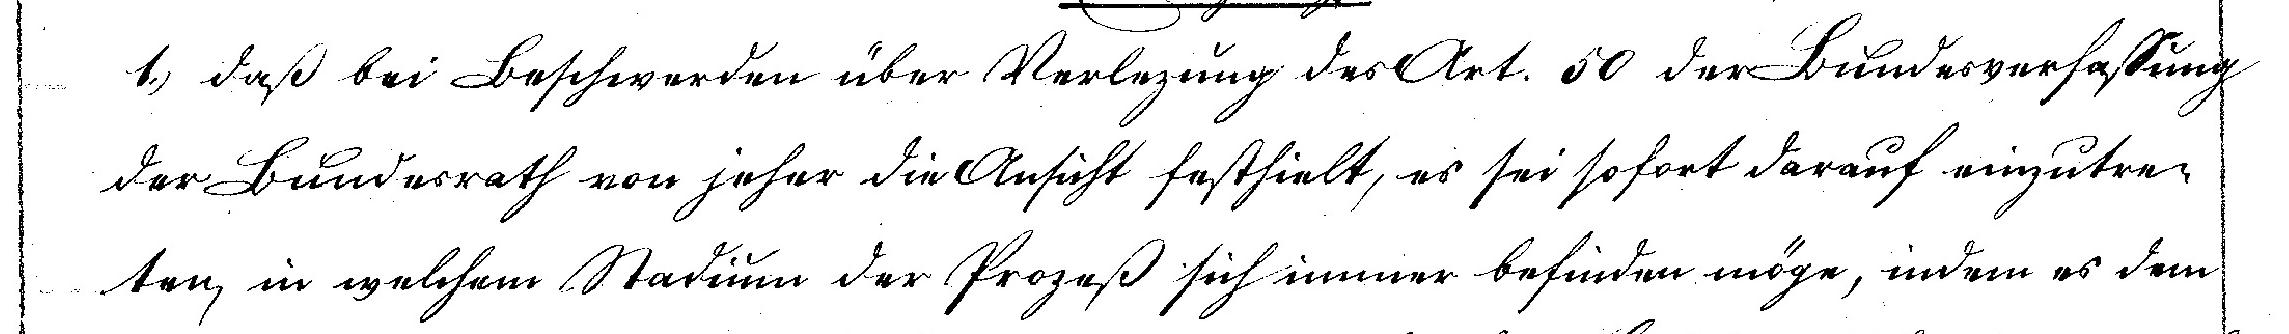 1.) daß bei Beschwerden über Verlezung des Art. 50 der Bundesverfassung
der Bundesrath von jeher die Ansicht festhielt, es sei sofort darauf einzutre-
ten, in welchem Stadium der Prozeß sich immer befinden möge, indem es dem